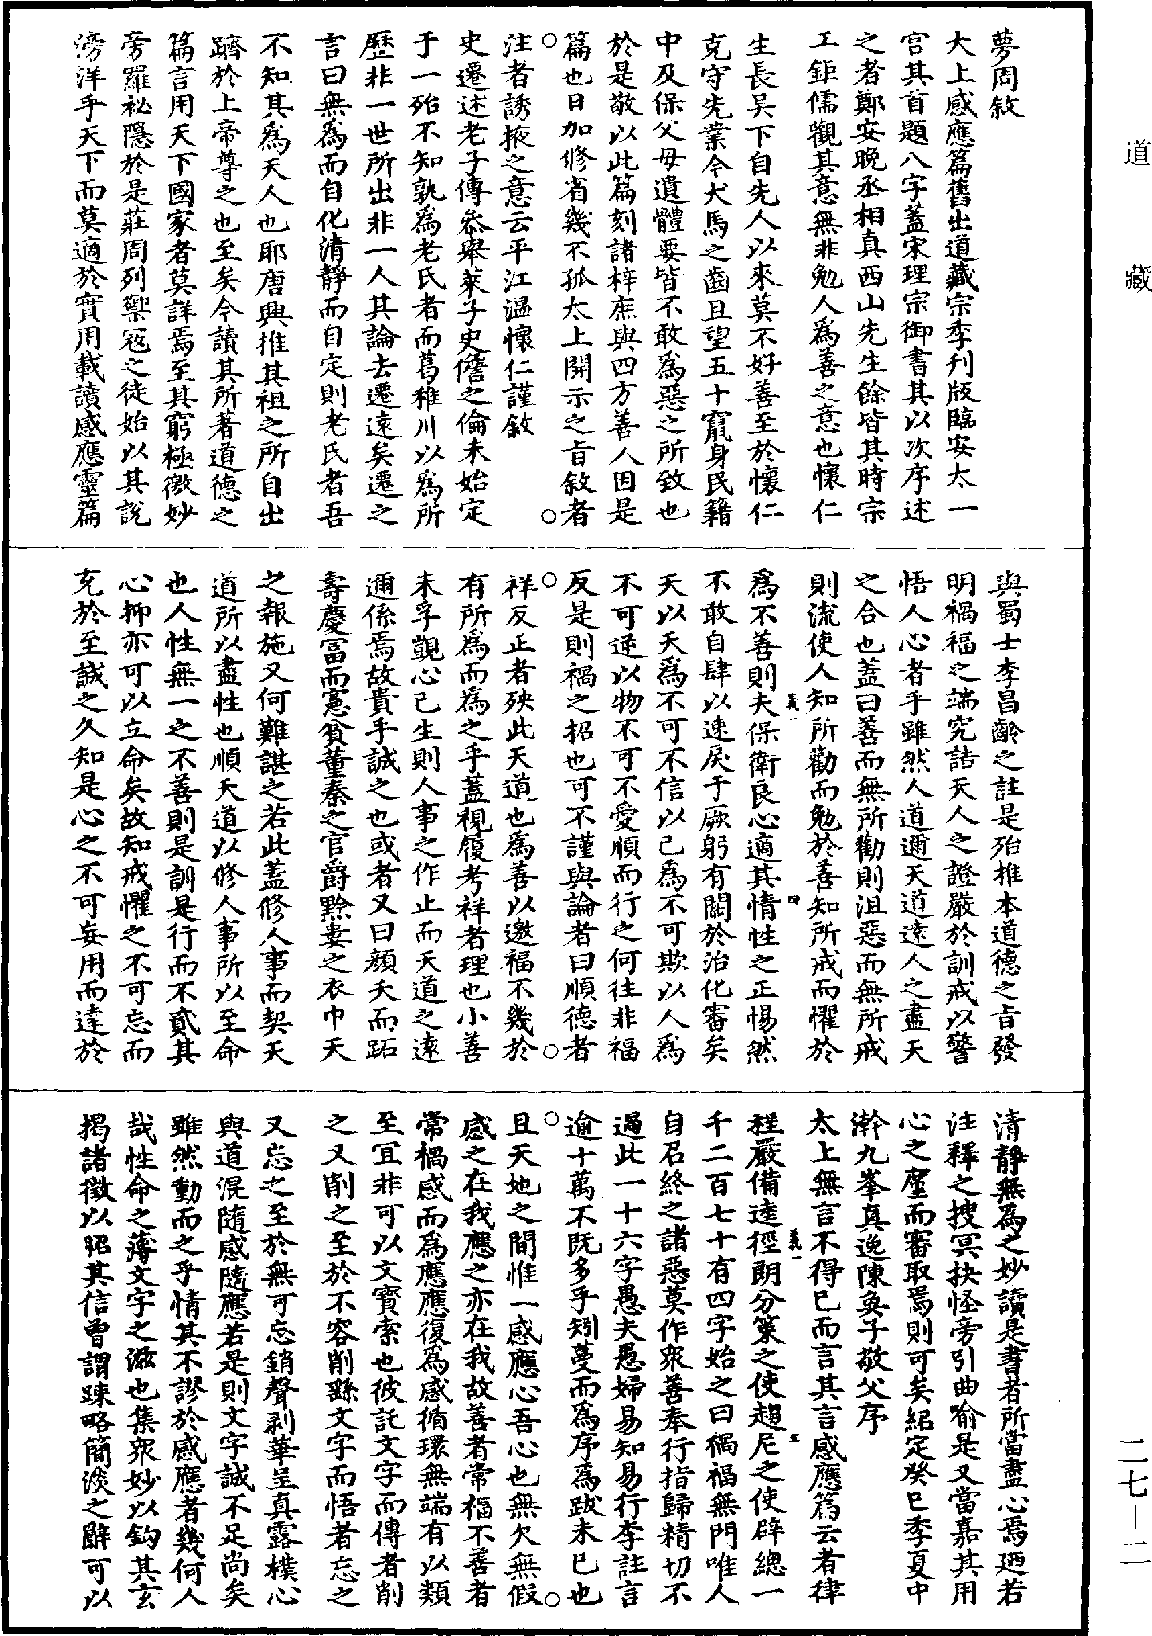 道藏
夢周敘
大上感應篇舊出道藏宗季刊版臨安太一
宮其首題八字蓋宋理宗御書其以次序述
之者鄭安晚丞相真西山先生餘皆其時宗
工鉅儒觀其意無非勉人為善之意也懷仁
生長吳下自先人以來莫不好善至於懷仁
克守先業今犬馬之齒且望五十竄身民籍
中及保父母遺體要皆不敢為惡之所致也
於是敬以此篇刻諸梓庶與四方善人因是
篇也日加修省幾不孤太上開示之旨敘者
注者誘掖之意云平江溫懷仁謹敘
史遷述老子傳叅舉萊子史儋之倫未始定
于一殆不知孰為老氏者而葛稚川以為所
歷非一世所出非一人其論去遷遠矣遷之
言曰無為而自化清靜而自定則老氏者吾
不知其為天人也耶唐興推其祖之所自出
躋於上帝尊之也至矣今讀其所著道德之
篇言用天下國家者莫詳焉至其窮極微妙
旁羅祕隱於是莊周列禦寇之徒始以其說
滂洋乎天下而莫適於實用載讀感應靈篇
與蜀士李昌齡之註是殆推本道德之旨發
明禍福之端究詰天人之證嚴於訓戒以警
悟人心者乎雖然人道邇天道遠人之盡天
之合也蓋曰善而無所勸則沮惡而無所戒
則流使人知所勸而勉於善知所戒而懼於
為不善則夫保衛良心適其情性之正惕然
不敢自肆以速戾于厥躬有關於治化審矣
天以天為不可不信以己為不可欺以人為
不可逆以物不可不愛順而行之何往非福
反是則禍之招也可不謹與論者曰順德者
祥反正者殃此天道也為善以邀福不幾於
有所為而為之乎蓋視履考祥者理也小善
未孚覬心已生則人事之作止而天道之遠
邇係焉故貴乎誠之也或者又曰顏夭而跖
壽慶富而憲貧董秦之官爵黔妻之衣巾天
之報施又何難諶之若此蓋修人事而契天
道所以盡性也順天道以修人事所以至命
也人性無一之不善則是訓是行而不貳其
心抑亦可以立命矣故知戒懼之不可忘而
充於至誠之久知是心之不可妄用而達於
清靜無為之妙讀是書者所當盡心焉廼若
注釋之搜冥抉怪旁引曲喻是又當嘉其用
心之塵而審取焉則可矣紹定癸巳季夏中
澣九峯真逸陳奐子敬父序
太上無言不得已而言其言感應篇云者律
程嚴備逵徑朗分策之使趨尼之使辟總一
千二百七十有四字始之曰禍福無門唯人
自召終之諸惡莫作衆善奉行指歸精切不
過此一十六字愚夫愚婦易知易行李註言
逾十萬不既多乎矧蔓而為序為跋未已也
且天地之間惟一感應心吾心也無欠無假
感之在我應之亦在我故善者常福不善者
常禍感而為應應復為感循環無端有以類
至冝非可以文寶索也彼託文字而傳者削
之又削之至於不容削繇文字而悟者忘之
又忘之至於無可忘銷聲剥華呈真露樸心
與道混隨感隨應若是則文字誠不足尚矣
雖然動而之乎情其不謬於感應者幾何人
哉性命之薄文字之滋也集衆妙以鈎其玄
揭諸徵以昭其信曾謂踈略簡淡之辭可以
義一
四
義一
五
二七—二